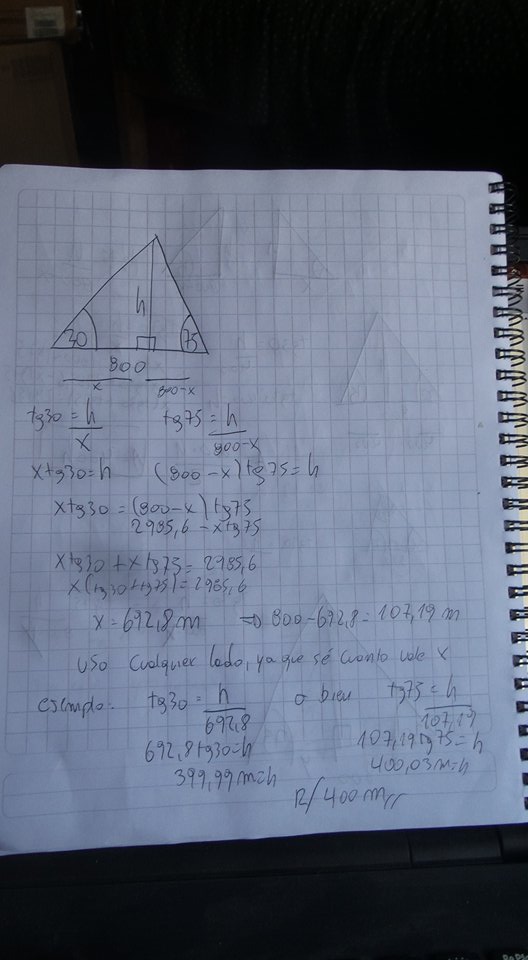 h
30
75
800
x
800-x
tg30 = h/x    tg75 = h/800-x
xtg30=h    (800-x)tg75=h
xtg30=(800-x)tg75
2985,6 - xtg75
xtg30+xtg75=2985,6
x(tg30+tg75)=2985,6
x=692,8m => 800-692,8=107,19 m
uso cualquier lado, ya que sé cuanto vale x
ejemplo: tg30 = h/692,8 o bien tg75=h/107,19
692,8tg30=h    107,19tg75=h
399,99m=h    400,03m=h
R/400m